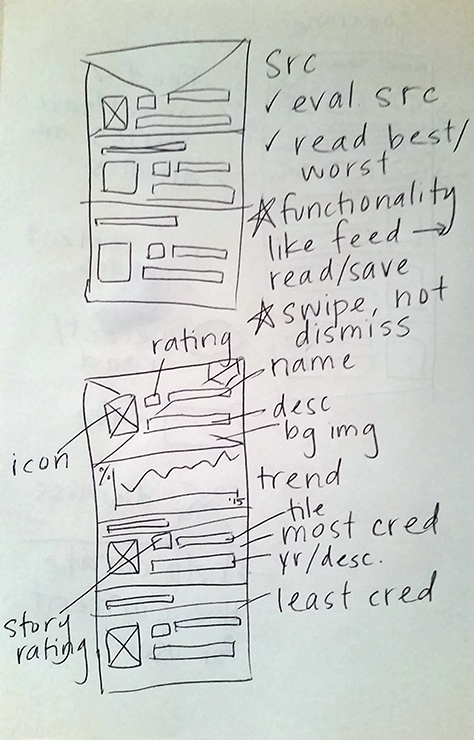 src
✓ eval. src
✓ read best/
worst
☆ functionality
like feed →
read/save
☆ swipe, not
dismiss
rating
name
desc
bg img
icon
%
'15
trend
title
most cred
yr/desc.
least cred
story
rating